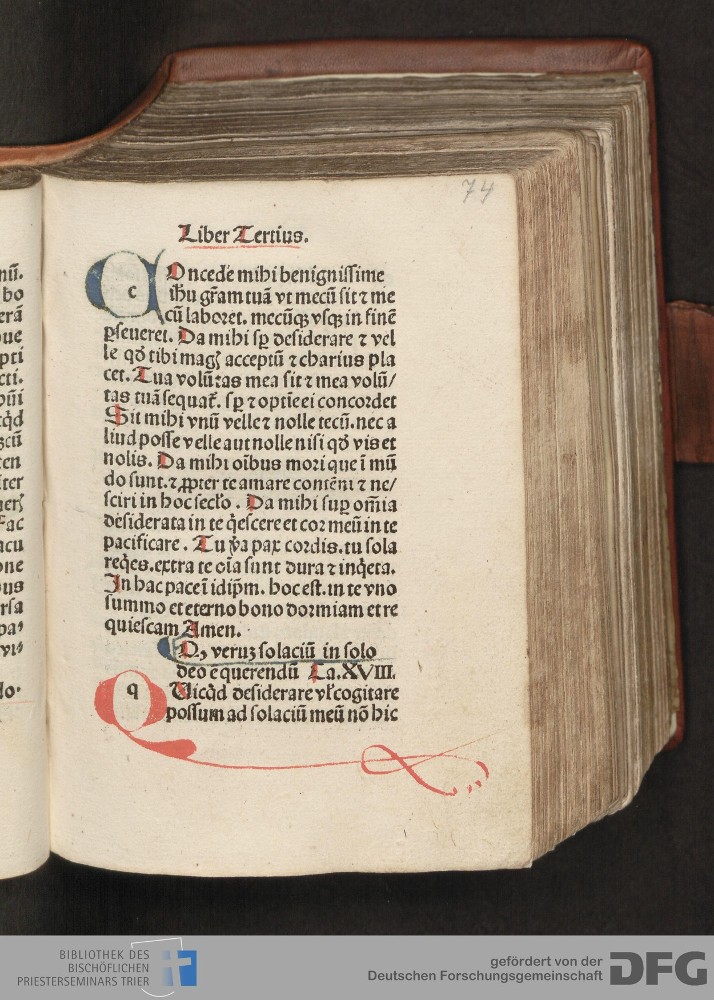 74
Liber Tertius.
c Oncede mihi benignissime
ihu gr̄am tuā vt mecū sit ⁊ me
cū laboret. mecūqꝫ vsqꝫ in finē
ꝑseueret. Da mihi sꝑ desiderare ⁊ vel
le qď tibi magꝭ acceptū ⁊ charius pla
cet. Tua volūtas mea sit ⁊ mea volū/
tas tuā sequat᷑. sꝑ ⁊ optīe ei concordet
Sit mihi vnū velle ⁊ nolle tecū. nec a
liud posse velle aut nolle nisi qď vis et
nolis. Da mihi oībus mori que ī mū
do sunt. ⁊ ꝓpter te amare contēni ⁊ ne/
sciri in hoc seclo. Da mihi suꝑ om̄ia
desiderata in te q̇escere et cor meū in te
pacificare. Tu v̾a pax cordis. tu sola
req̇es. extra te oīa sunt dura ⁊ inq̇eta.
In hac pace ī idip̄m. hoc est. in te vno
summo et eterno bono dormiam et re
quiescam Amen.
Q, veruꝫ solaciū in solo
deo ē querendū Ca. XVIII.
q Uicq̇d desiderare vl̕ cogitare
possum ad solaciū meū nō hic
nū.
bo
erā
pti
cti.
cū
ten
iter
Fac
acu
one
rsa
BIBLIOTHEK DES
BISCHÖFLICHEN
PRIESTERSEMINARS TRIER
gefördert von der
Deutschen Forschungsgemeinschaft
DFG